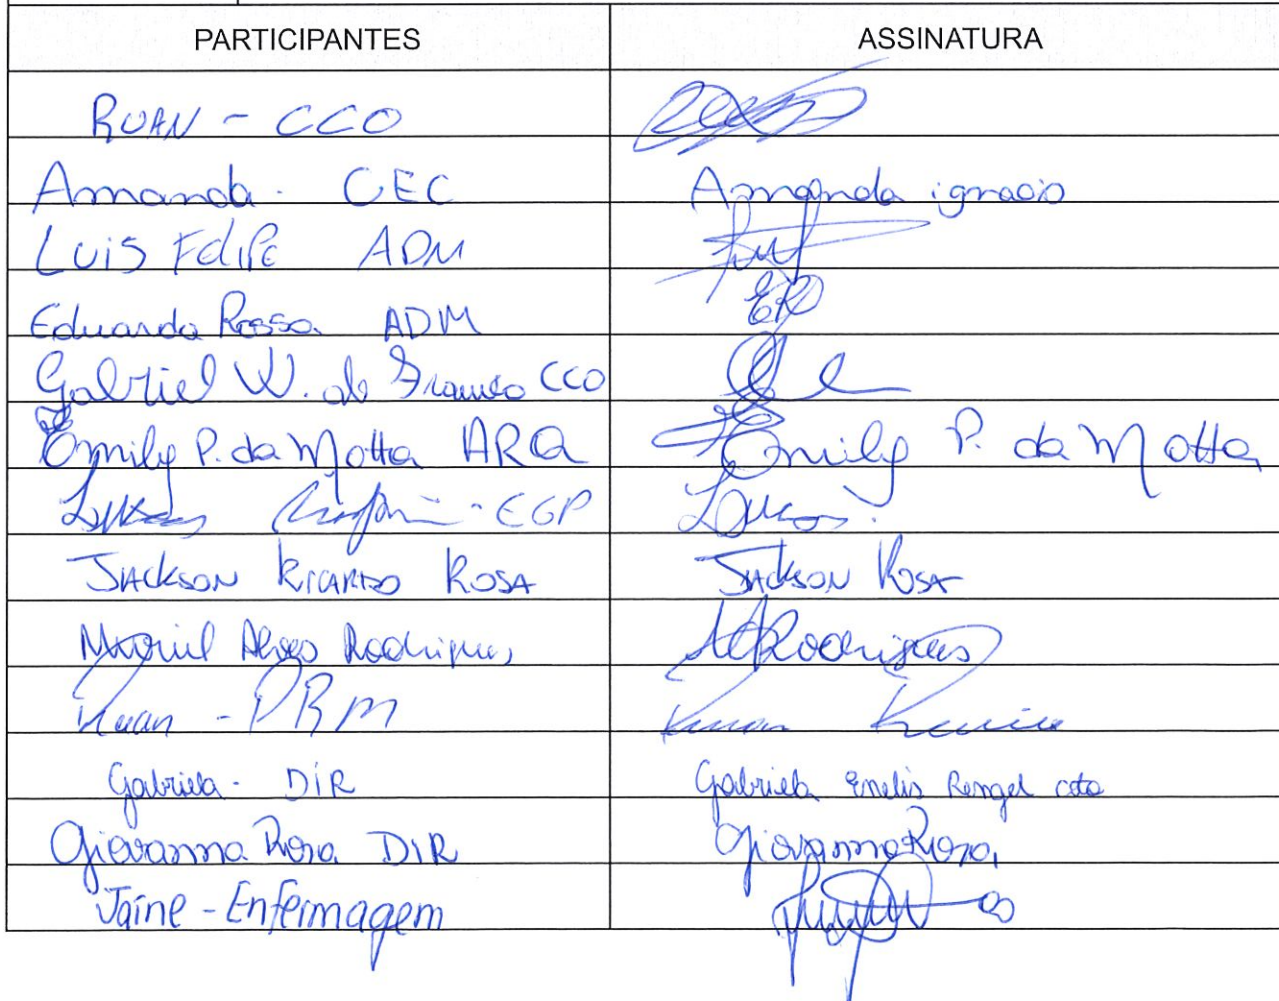 PARTICIPANTES ASSINATURA
RUAN - CCO
Amanda - CEC Amanda ignacio
Luis Felipe ADM
Eduarda Rossa ADM ER
Gabriel W. de CCO
Emily P. da Motta ARQ Emily P. da Motta
Lukas - EGP Lukas
JACKSON RICARDO ROSA JACKSON ROSA
Alves Rodrigues Rodrigues
Ruan - PRM
Gabriela - DIR Gabriela Rengel
Giovanna Rosa DIR Giovanna Rosa
Jaíne - Enfermagem